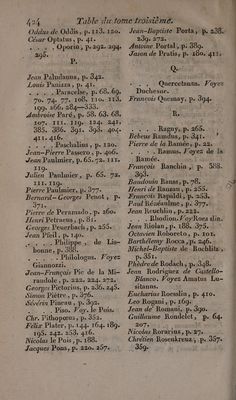 424 Table du tome troisième.
Oddus de Oddis, p. 113. 120.
César Optatus, p. 41.
. . . . Oporin, p. 292. 294.
295.
P.
Jean Palmdanna, p. 342.
Louis Panizza, p. 41.
. . . . Paracelse, p. 68. 69.
70. 74. 77. 108. 110. 113.
199. 266. 284—333.
Ambroise Paré, p. 58. 63. 68.
107. 111. 119. 124. 241.
385. 386. 391. 393. 404.
411. 416.
. . . . Paschalius, p. 120.
Jean-Pierre Passero, p. 406.
Jean Paulmier, p. 65. 72. 111.
119.
Julien Paulmier, p. 65. 72.
111. 119.
Pierre Paulmier, p. 377.
Bernard-Georges Penot, p.
371.
Pierre de Peramado, p. 260.
Henri Petraeus, p. 81.
Georges Peuerbach, p. 255.
Jean Pfeil, p. 140.
. . . . Philippe de Lis-
bonne, p. 388.
. . . . Philologus. Voyez
Giannozzi.
Jean-François Pic de la Mi-
randole, p. 222. 224. 272.
Georges Pictorius, p. 236. 245.
Simon Piètre, p. 376.
Sévérin Pineau, p. 392.
. . . . Piso. Voy. le Pois.
Chr. Pithoporus, p. 352.
Félix Plater, p. 144. 164. 189.
195. 242. 253. 416.
Nicolas le Pois, p. 188.
Jacques Pons, p. 220. 257.
Jean-Baptiste Porta, p. 238.
239. 272.
Antoine Portal, p. 389.
Jason de Pratis, p. 180. 411.
Q.
. . . . Quercetanus. Voyez
Duchesne.
François Quesnay, p. 394.
R.
. . . . Ragny, p. 265.
Bebeus Ramdus, p. 341.
Pierre de la Ramée, p. 22.
. . . . Ramus. Voyez de la
Ramée.
François Ranchin, p. 388.
393.
Baudouin Ronss, p. 78.
Henri de Ranzau, p. 255.
François Rapidi, p. 235.
Paul Réaulme, p. 377.
Jean Reuchlin, p. 222.
. . . . Rhodion. Voy. Ros din.
Jean Riolan, p. 188. 375.
Octavien Roboreto, p. 101.
Barthélemy Rocca, p. 246.
Michel-Baptiste de Rochlitz,
p. 351.
Phèdre de Rodach, p. 348.
Jean Rodriguez de Castello-
Blanco. Voyez Amatus Lu-
sitanus.
Eucharius Roesslin, p. 410.
Leo Rogani, p. 169.
Jean de Romani, p. 390.
Guillaume Rondelet, p. 64.
207.
Nicolas Rorarius, p. 27.
Chrétien Rosenkreuz, p. 357.
359.